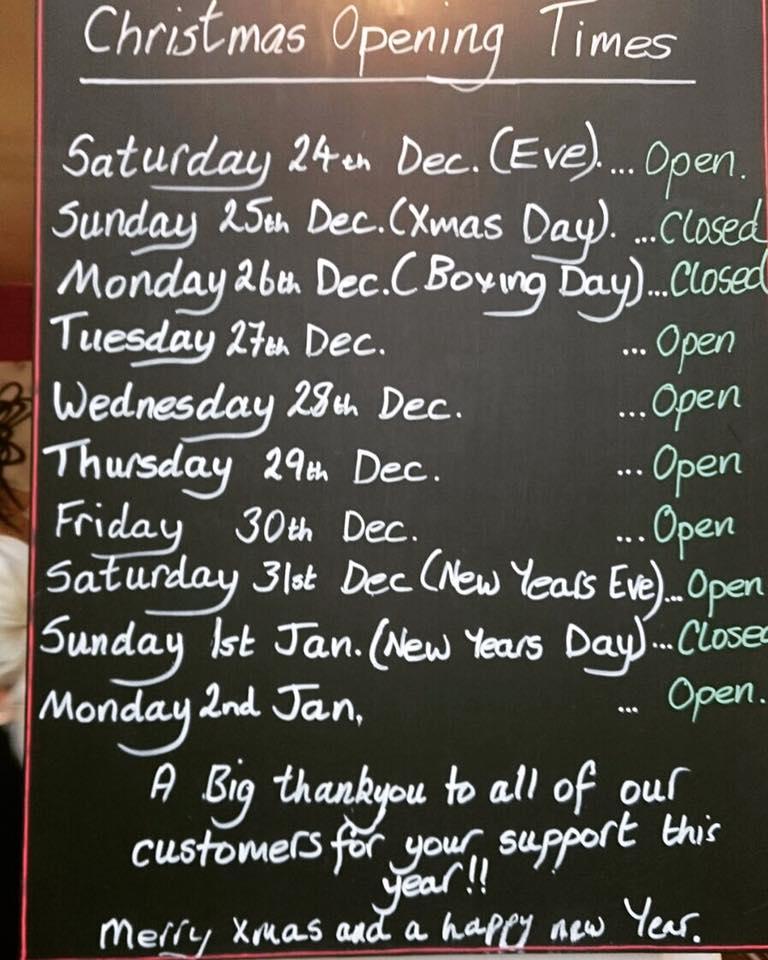 Christmas Opening Times
Saturday 24th Dec. (Eve). ... Open.
Sunday 25th Dec. (Xmas Day). ... Closed
Monday 26th Dec. (Boxing Day) ... Closed
Tuesday 27th Dec. ... Open
Wednesday 28th Dec. ... Open
Thursday 29th Dec. ... Open
Friday 30th Dec. ... Open
Saturday 31st Dec (New Years Eve) ... Open
Sunday 1st Jan. (New Years Day) ... Closed
Monday 2nd Jan, ... Open.
A Big thankyou to all of our
customers for your support this
year!!
Merry Xmas and a happy new Year.